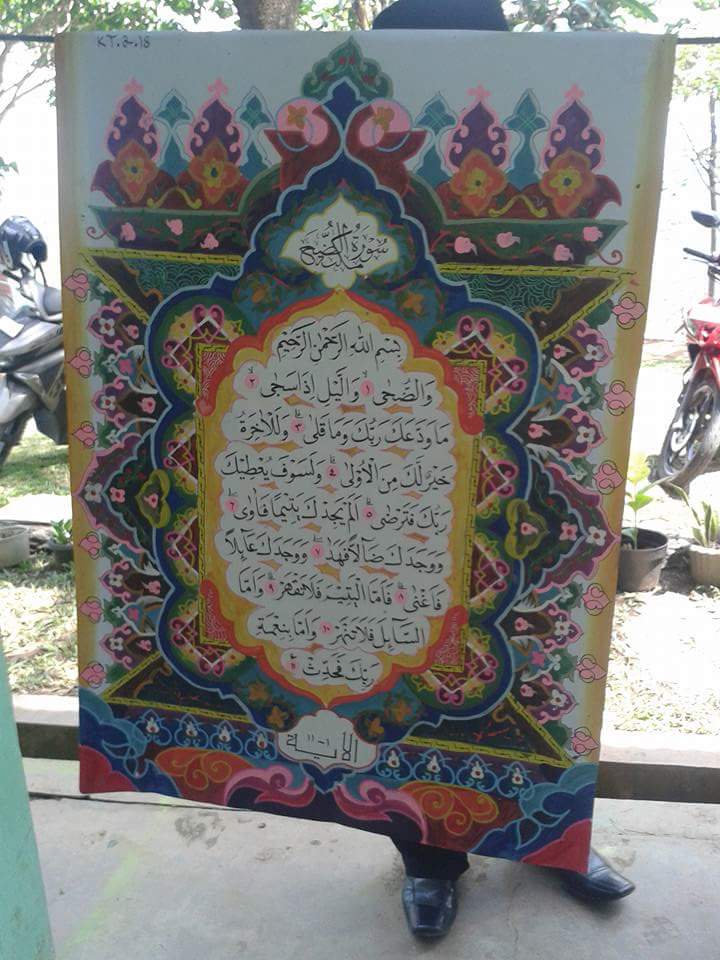 KT.3.18
سُوْرَةُ الضُّحٰى
بِسْمِ اللهِ الرَّحْمٰنِ الرَّحِيْمِ
وَالضُّحٰى ١ وَالَّيْلِ اِذَا سَجٰى ٢
مَا وَدَّعَكَ رَبُّكَ وَمَا قَلٰى ٣ وَلَلْاٰخِرَةُ
خَيْرٌ لَّكَ مِنَ الْاُوْلٰى ٤ وَلَسَوْفَ يُعْطِيْكَ
رَبُّكَ فَتَرْضٰى ٥ اَلَمْ يَجِدْكَ يَتِيْمًا فَاٰوٰى ٦
وَوَجَدَكَ ضَاۤلًّا فَهَدٰى ٧ وَوَجَدَكَ عَاۤىِٕلًا
فَاَغْنٰى ٨ فَاَمَّا الْيَتِيْمَ فَلَا تَقْهَرْ ٩ وَاَمَّا
السَّاۤىِٕلَ فَلَا تَنْهَرْ ١٠ وَاَمَّا بِنِعْمَةِ
رَبِّكَ فَحَدِّثْ ١١
١-١١
الاية